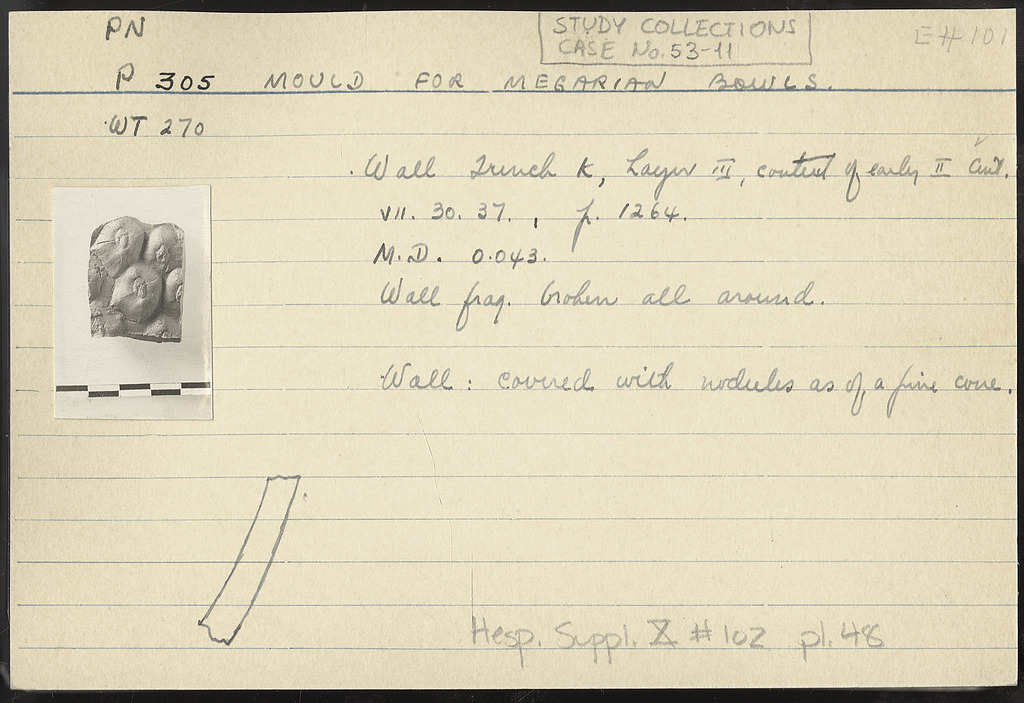 PN
STUDY COLLECTIONS
CASE No. 53-11
E#101
P 305 MOULD FOR MEGARIAN BOWLS.
WT 270
Wall Trench K, Layer III, context of early II Cent.
VII. 30. 37., p. 1264.
M.D. 0.043.
Wall frag. broken all around.
Wall: covered with nodules as of a pine cone.
Hesp. Suppl. X #102 pl. 48